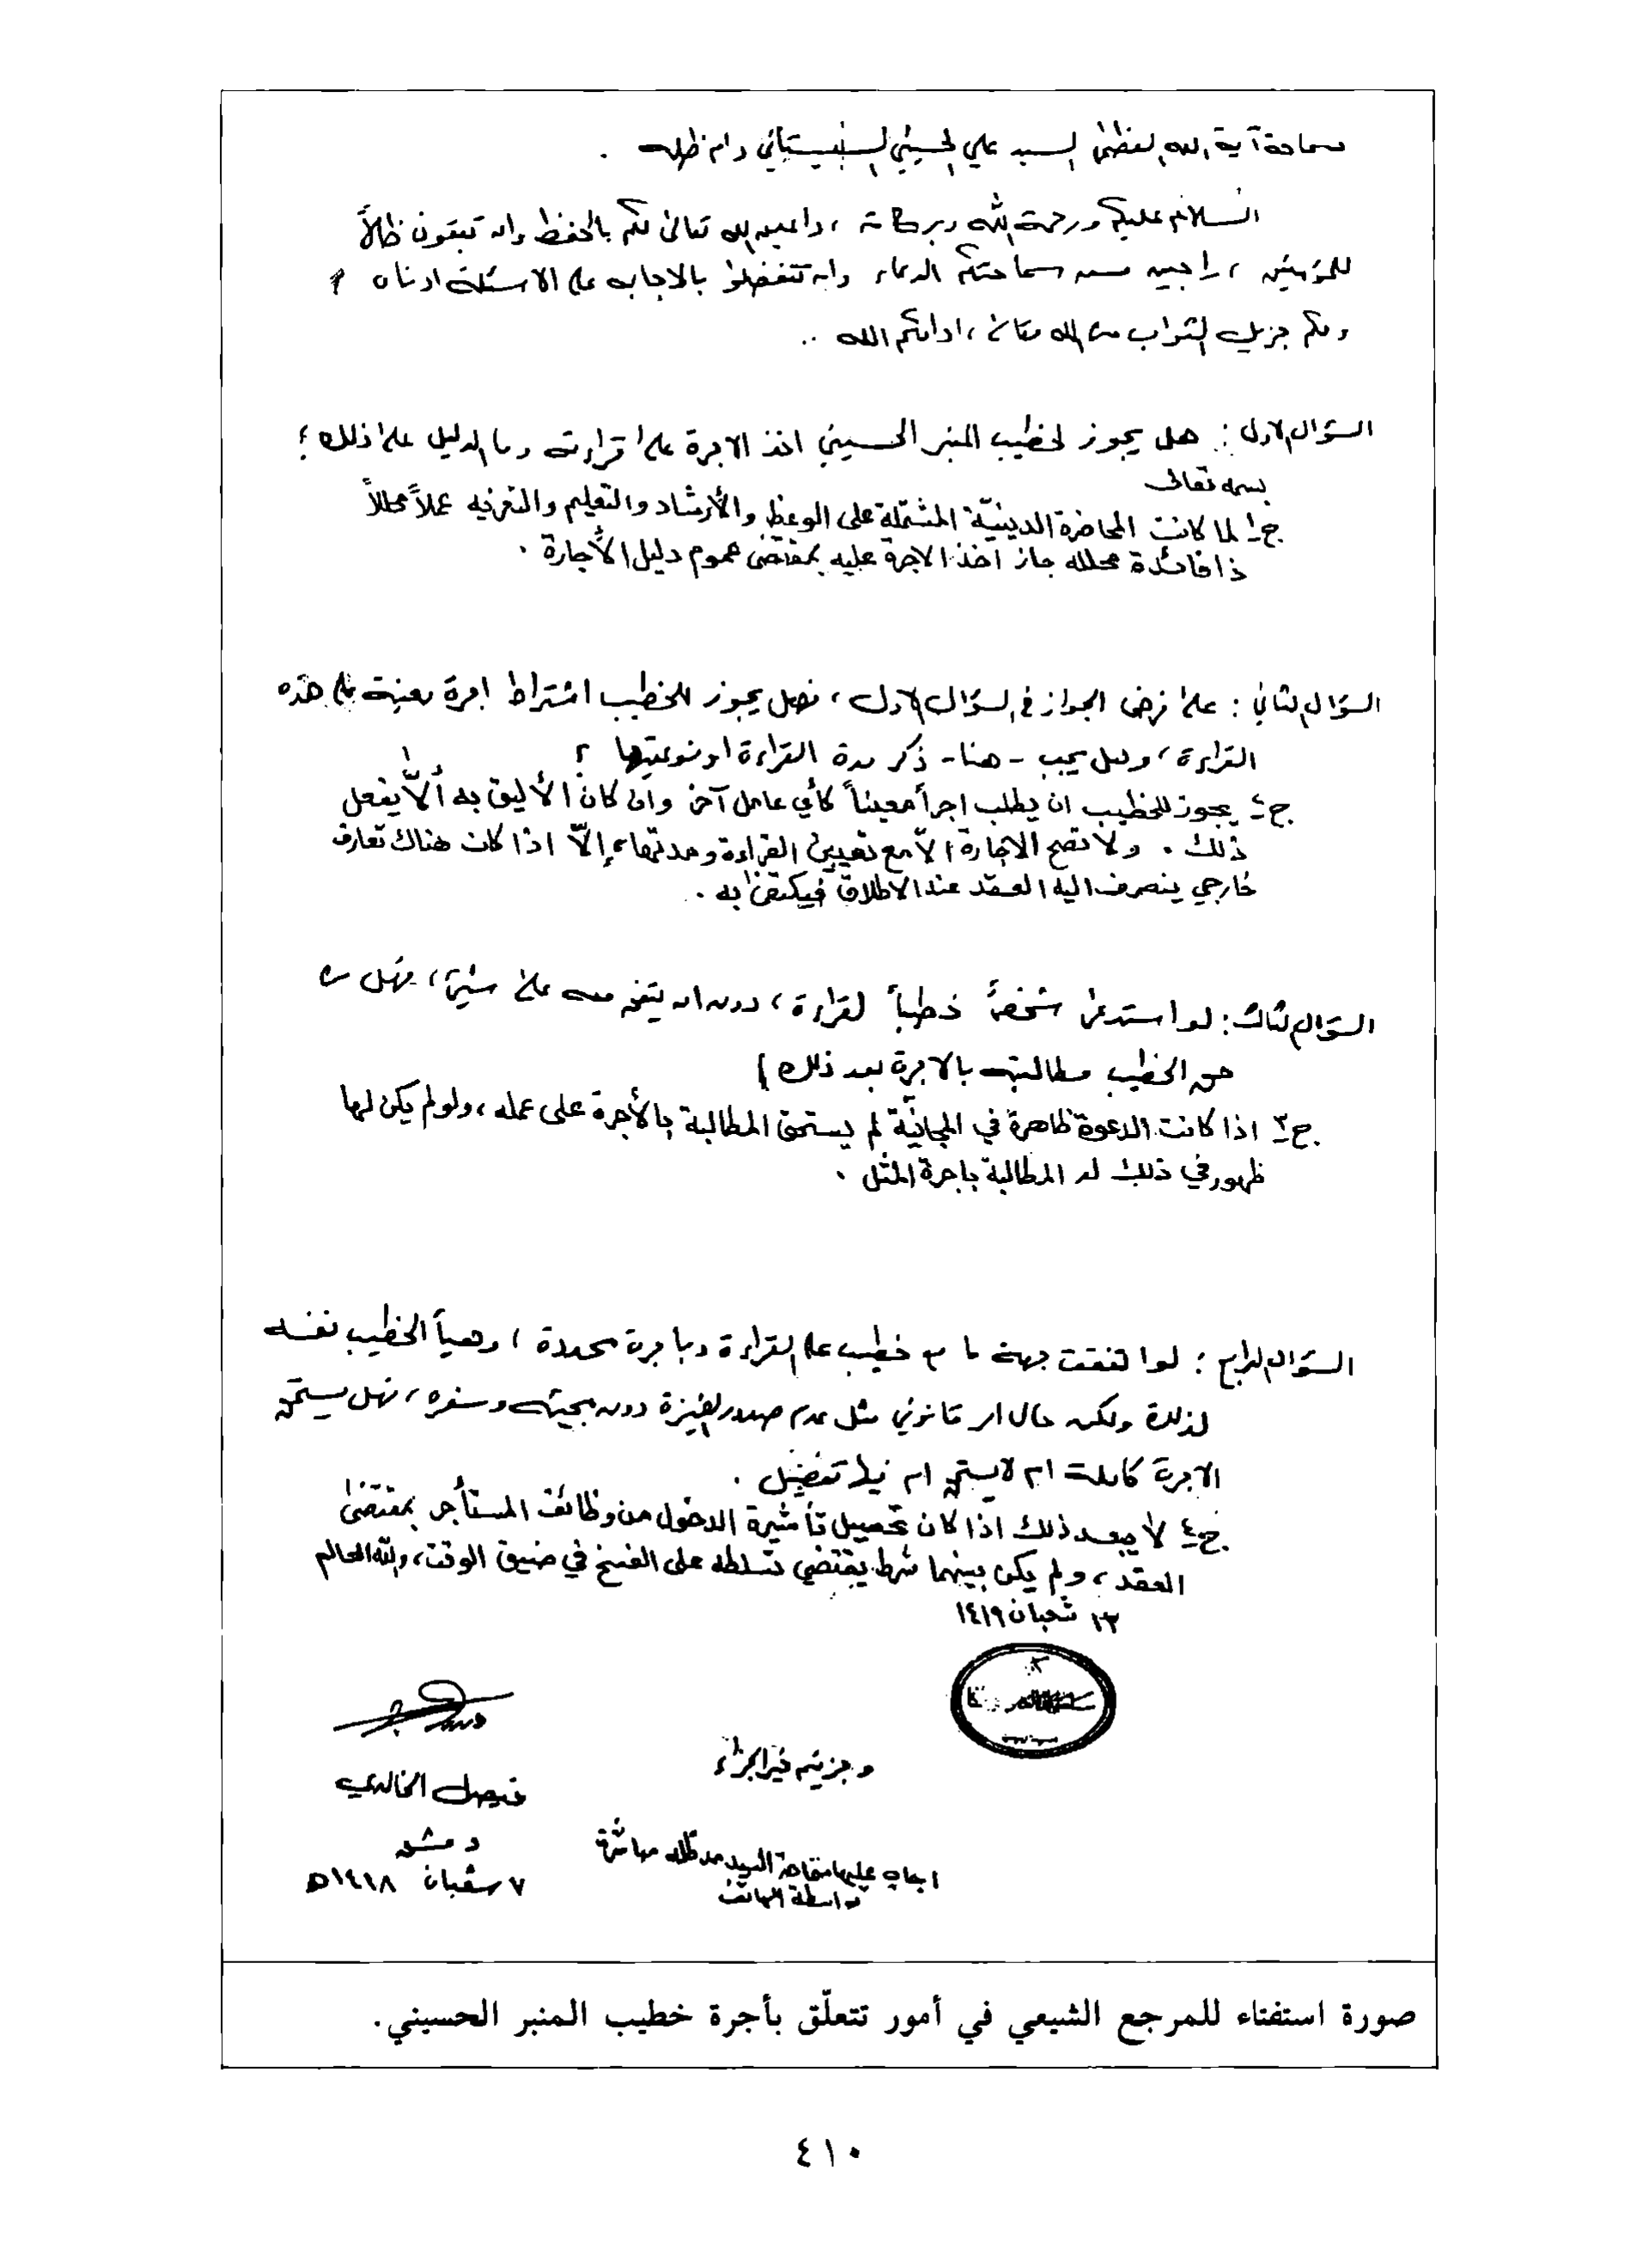 سماحة آية الله العظمى السيد علي الحسيني السيستاني دام ظله .
السلام عليكم ورحمة الله وبركاته ، داعين الله تعالى لكم بالحفظ وان تبقون ظلاً
للمؤمنين ، راجين من سماحتكم الدعاء وان تتفضلوا بالاجابه على الاسئلة ادناه
ولكم جزيل الثواب من الله تعالى ، ادامكم الله ..
السؤال الاول : هل يجوز لخطيب المنبر الحسيني اخذ الاجرة على قراءته وما الدليل على ذلك ؟
بسمه تعالى
ج١ لما كانت المحاضرة الدينيّة المشتملة على الوعظ والأرشاد والتعليم والتعزيه عملاً محللاً
ذا فائدة محلله جاز اخذ الاجرة عليه بمقتضى عموم دليل الأجارة .
السؤال الثاني : على فرض الجواز في السؤال الاول ، فهل يجوز للخطيب اشتراط اجرة معينة على هذه
القراءة ، وهل يجب - هنا - ذكر مدة القراءة او نوعيتها ؟
ج٢ يجوز للخطيب ان يطلب اجراً معيناً كأي عامل آخر وان كان الأليق به ألاّ يفعل
ذلك . ولا تصح الاجارة الاّ مع تعيين القراءة ومدتها ، إلاّ اذا كان هناك تعارف
خارجي ينصرف اليه العقد عند الاطلاق فيكتفى به .
السؤال الثالث : لو استدعى شخصاً خطيباً لقراءة ، دون ان يتفق معه على شيء ، فهل من
حق الخطيب مطالبته بالاجرة بعد ذلك
ج٣ اذا كانت الدعوة ظاهرة في المجانيّة لم يستحق المطالبة بالأجرة على عمله ، ولو لم يكن لها
ظهور في ذلك له المطالبة باجرة المثل .
السؤال الرابع : لو اتفقت جهة ما مع خطيب على القراءة وباجرة محددة ، وهيأ الخطيب نفسه
لذلك ولكن حال امر قانوني مثل عدم صدور الفيزة دون مجيئه وسفره ، فهل يستحق
الاجرة كاملة ام لا يستحق ام فيه تفصيل .
ج٤ لا يبعد ذلك اذا كان تحصيل تأشيرة الدخول من وظائف المستأجر بمقتضى
العقد ، ولم يكن بينهما شرط يقتضي تسلطه على الفسخ في ضيق الوقت ، والله العالم
١٣ شعبان ١٤١٩
وجزيتم خير الجزاء
فيصل الخالدي
دمشق
٧ شعبان ١٤١٨ هـ
اجاب عليها سماحة السيد مد ظله مباشرة
بواسطة الهاتف
صورة استفتاء للمرجع الشيعي في أمور تتعلّق بأجرة خطيب المنبر الحسيني.
٤١٠